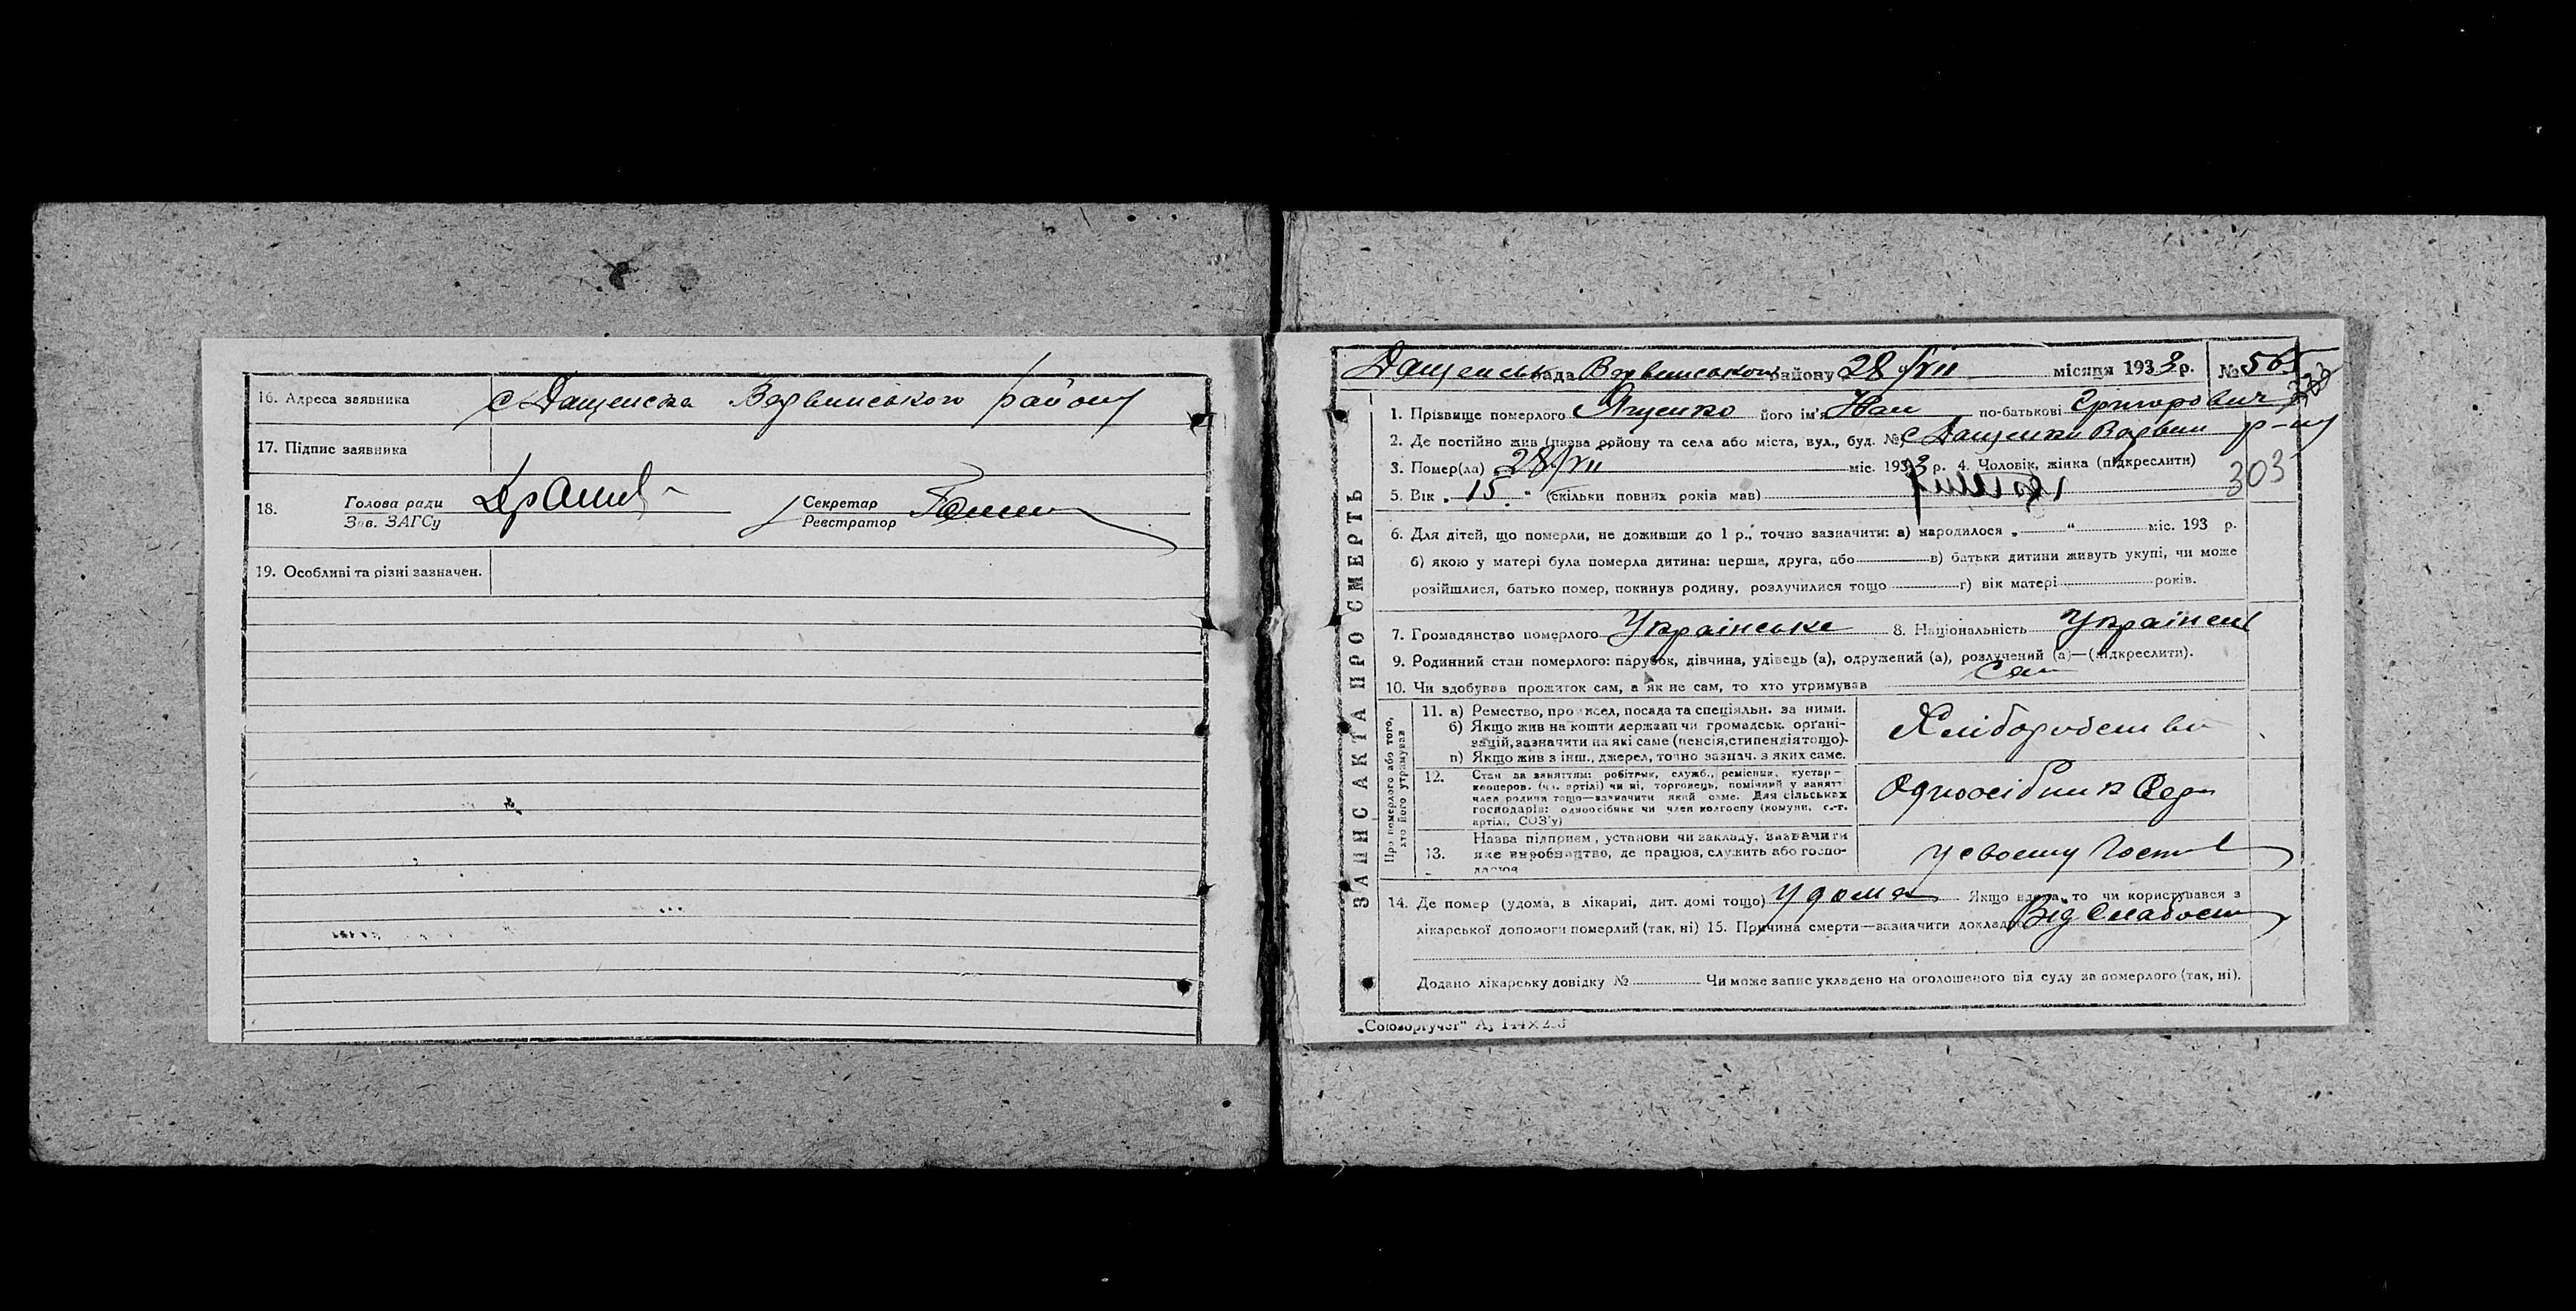 16. Адреса заявника с Дащенка Варвинського району
17. Підпис заявника
18. Голова ради
Зав. ЗАГСу
Секретар
Реєстратор
19. Особливі та різні зазначен.
ЗАПИС АКТА ПРО СМЕРТЬ
Дащенськ рада Варвинського району 28/VII місяця 1933 р. № 565
1. Прізвище померлого Ященко його ім'я Иван по-батькові Григорович
2. Де постійно жив (назва району та села або міста, вул., буд. № с Дащенки Варвин р-ну
3. Помер(ла) 28/VII міс. 1933 р. 4. Чоловік, жінка (підкреслити)
303
5. Вік „ 15 " (скільки повних років мав)
6. Для дітей, що померли, не доживши до 1 р., точно зазначити: а) народилося „ " міс. 193 р.
б) якою у матері була померла дитина: перша, друга, або в) батьки дитини живуть укупі, чи може
розійшлися, батько помер, покинув родину, розлучилися тощо г) вік матері років.
7. Громадянство померлого Українське 8. Національність Українец
9. Родинний стан померлого: парубок, дівчина, удівець (а), одружений (а), розлучений (а)—(підкреслити).
10. Чи здобував прожиток сам, а як не сам, то хто утримував Сам
Про померлого або того, хто його утримував
11. а) Ремество, промисел, посада та спеціяльн. за ними.
б) Якщо жив на кошти держави чи громадськ. органі-
зацій, зазначити на які саме (пенсія, стипендія тощо).
п) Якщо жив з інш., джерел, точно зазнач. з яких саме.
Хліборобство
12. Стан за заняттям: робітник, служб., ремісник, кустар-
кооперов. (чл. артілі) чи ні, торговець, помічний у занятті
член родини тощо—зазначити який саме. Для сільських
господарів: одноосібник чи член колгоспу (комуни, с.-г.
артілі, СОЗ'у)
Одноосібник Серн
13. Назва підприєм., установи чи закладу, зазначити
яке виробництво, де працює, служить або госпо-
дарює
у своему госп
14. Де помер (удома, в лікарні, дит. домі тощо) У дома Якщо вдома, то чи користувався з
лікарської допомоги померлий (так, ні) 15. Причина смерти—зазначити доклад Від Слабости
Додано лікарську довідку № Чи може запис укладено на оголошеного від суду за померлого (так, ні).
„Союзоргучет"